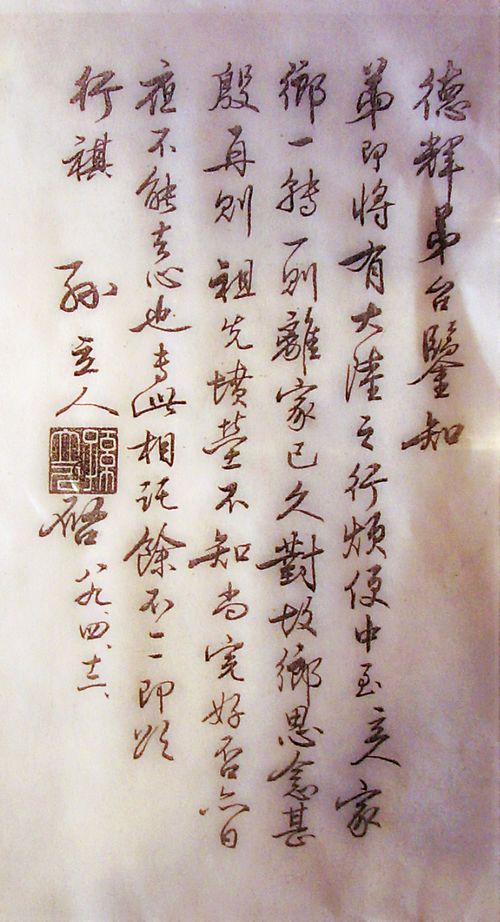 德輝弟台鑒知
弟即將有大陸之行煩便中至立人家
鄉一轉一則離家已久對故鄉思念甚
殷再則祖先墳塋不知尚完好否亦日
夜不能去心也專此相託餘不一即頌
行祺 孫立人 啓 八九、四、